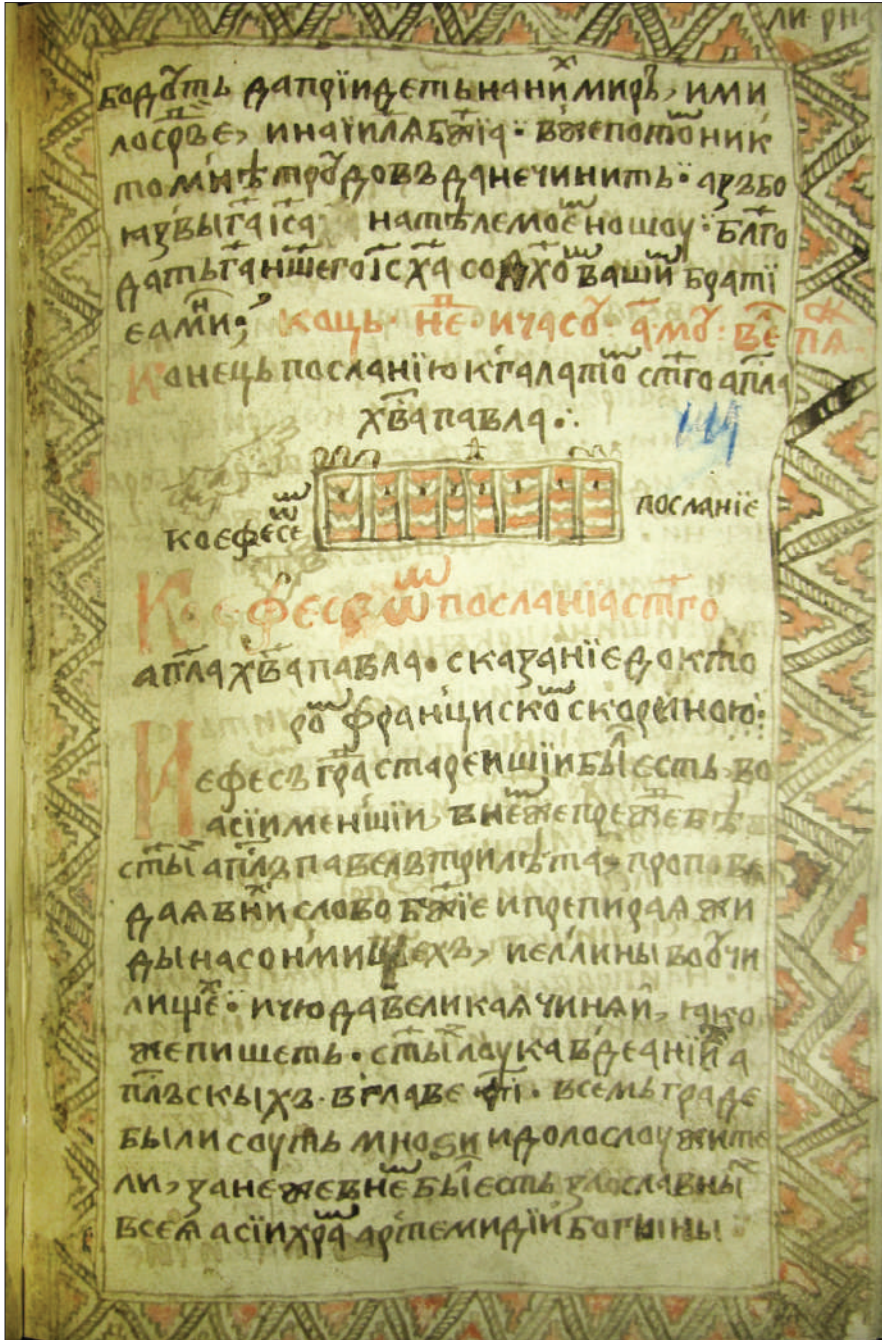 ли рна
бодꙋть да прїидеть на ни мⷯиръ, и ми
лосрⷣъе, и на їилѧ бж҃їа · вжепото ник
то мнѣ трꙋдовъ да не чинить · азъ бо
ꙗзвы гⷭ҇а і҃са на тѣле моеⷨ ношоу · блⷢ҇го
дать гⷭ҇а нш҃его іс҃ х҃а со дх҃оⷨ вашиⷨ братї
е амиⷩ҇ ·
конець посланїю к галатоⷨ ст҃го апⷭ҇ла
хв҃а павла ∴
ко ефесеⷨ посланїе
Ко ефесѡⷨ посланїа ст҃го
апⷭ҇ла хв҃а павла · сказанїе докто
роⷨ францискоⷨ скориною :
Ефесъ граⷣ стареишїи быⷧ есть во
асїи меншїи, в неⷨже преже
ст҃ыї апⷭ҇лъ павелъ три лѣта, пропове
даѧ в ниⷯ слово бж҃їе и препираѧ жи
ды на сонмищехъ, и еллины во ꙋчи
лищеⷯ · и чюда великаѧ чинѧи, ꙗко
же пишеть · ст҃ыї лоука в деанїиⷯ а
пⷭ҇лъскыхъ · в главе · ѳ҃і · в семь граде
были соуть мноѕи идолослоужите
ли, занеже в неⷨ быⷧ есть ꙁлославныї
всеѧ асїи храⷨ артемидїи богыны